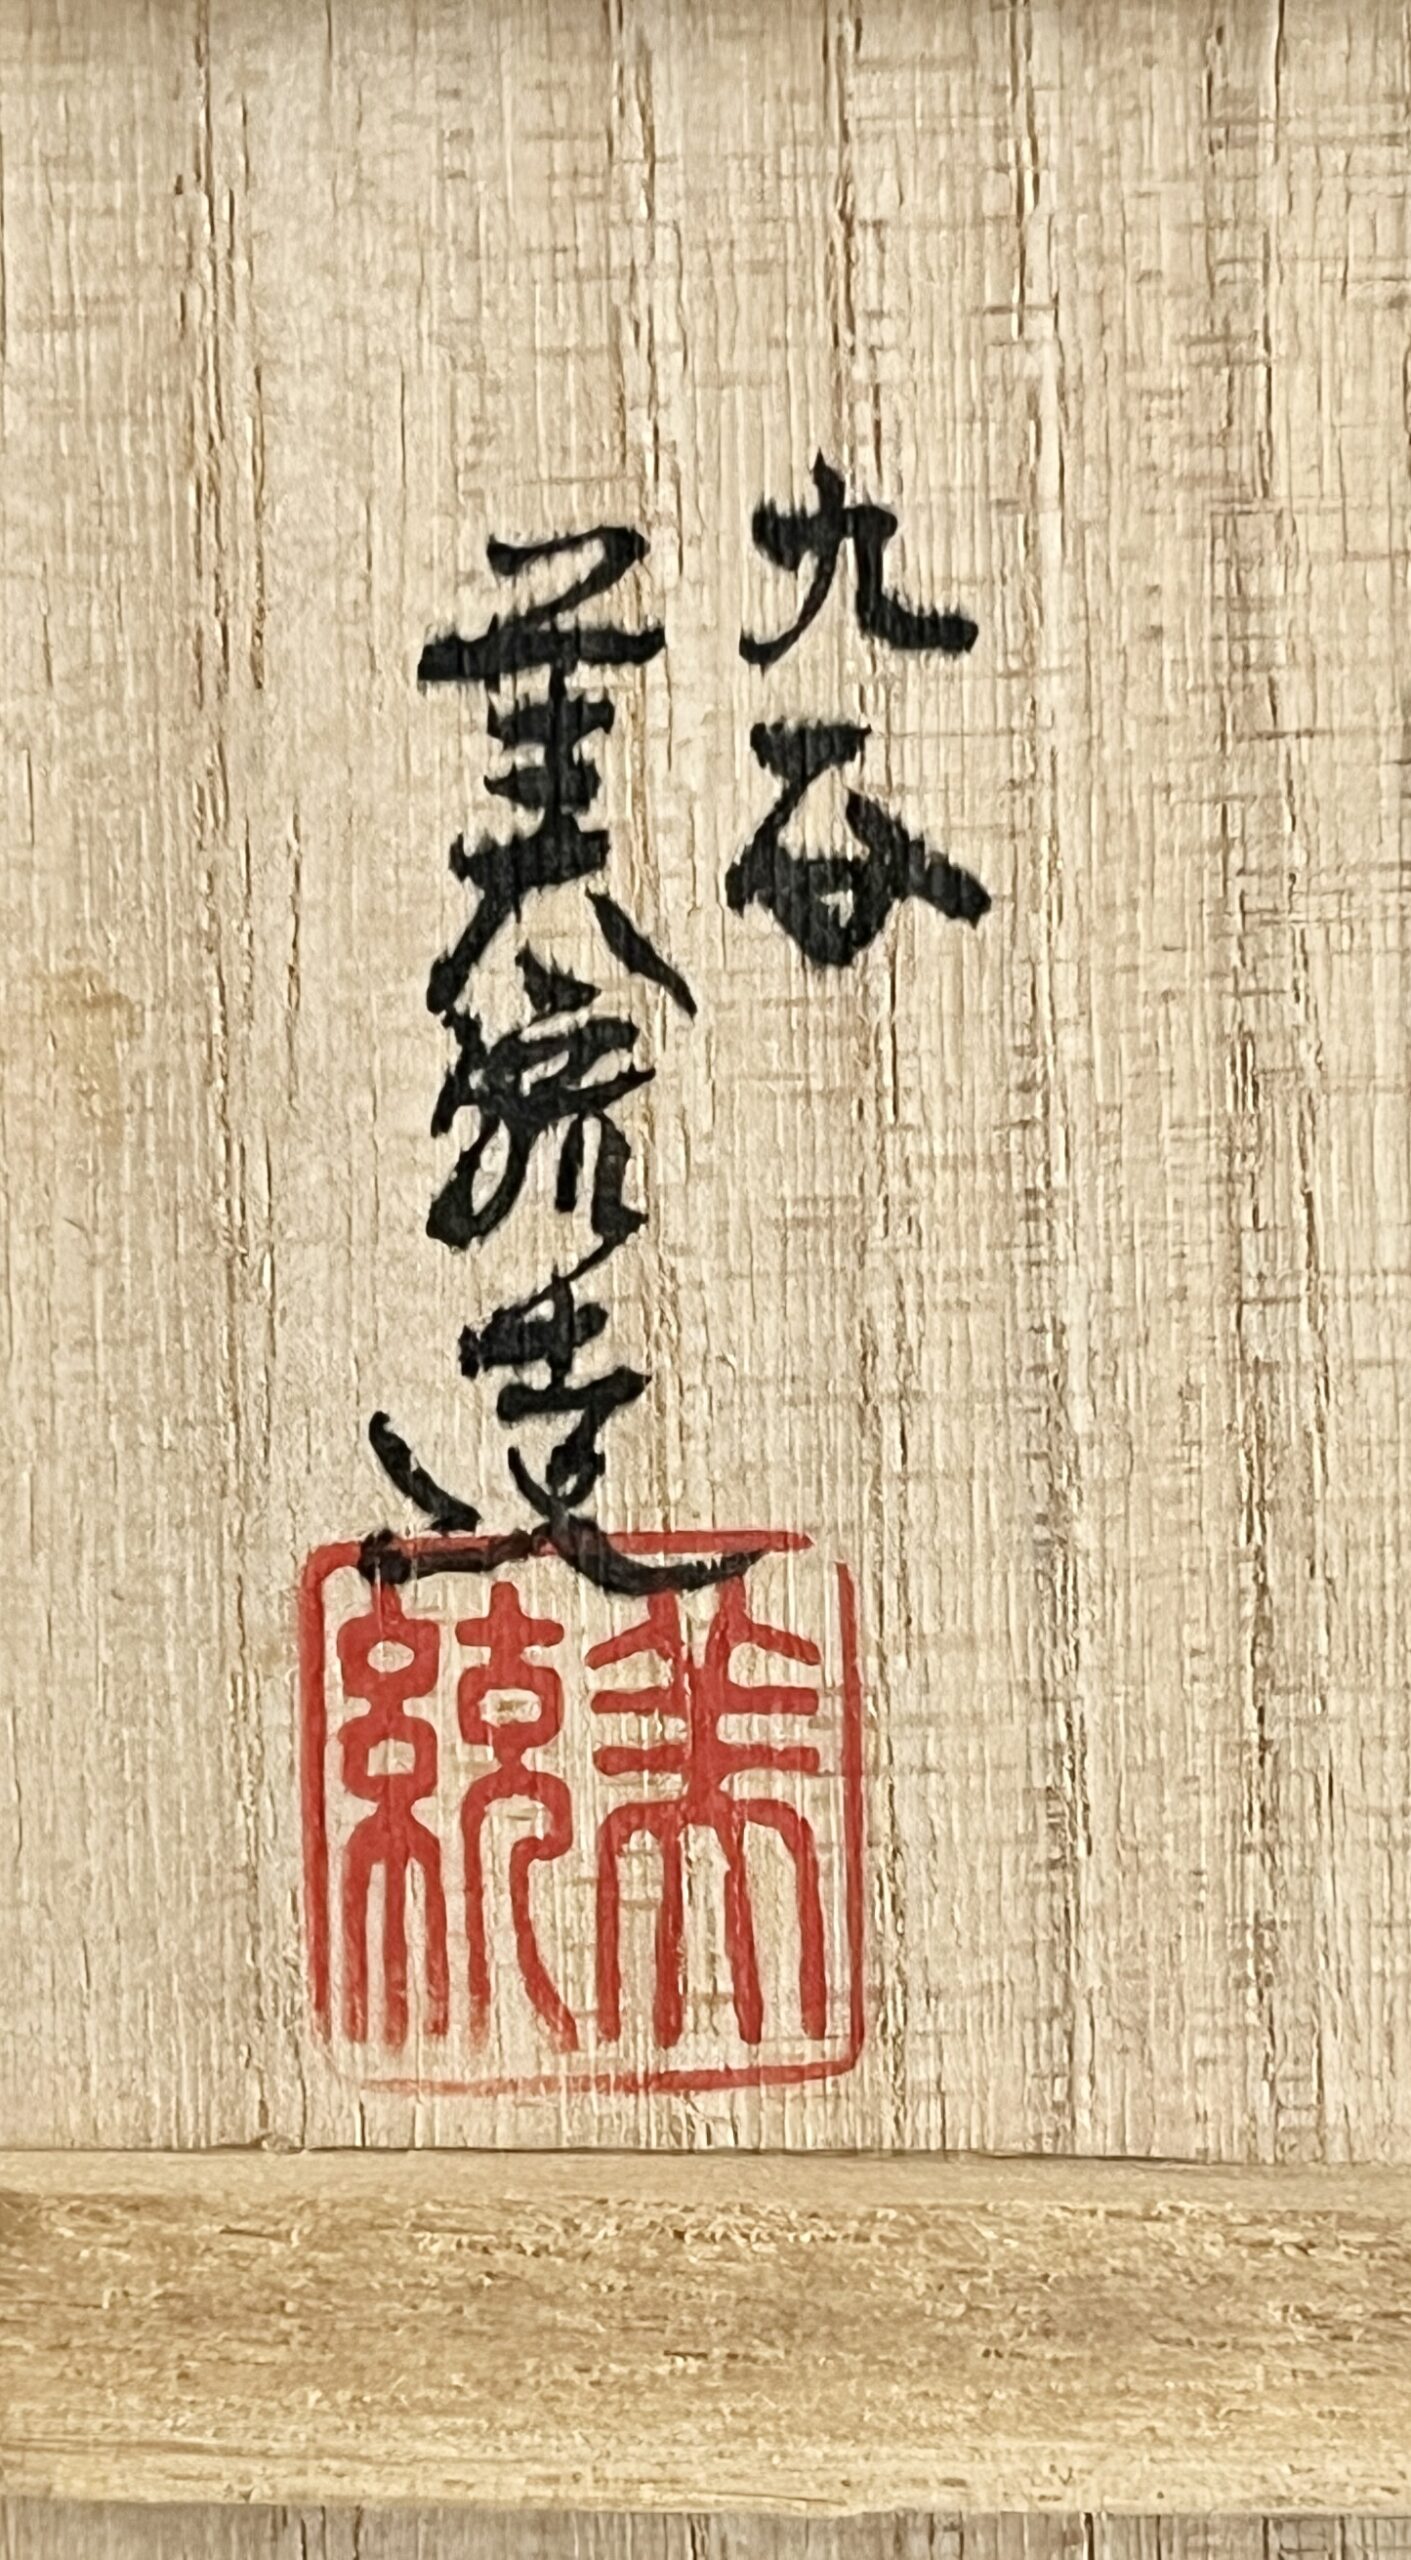 九谷
美統造
美統